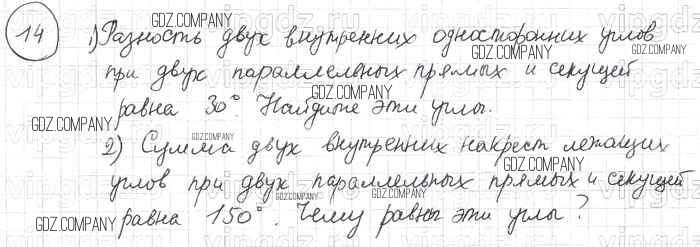 14
1) Разность двух внутренних односторонних углов
при двух параллельных прямых и секущей
равна 30°. Найдите эти углы.
2) Сумма двух внутренних накрест лежащих
углов при двух параллельных прямых и секущей
равна 150°. Чему равны эти углы?
GDZ.COMPANY
GDZ.COMPANY
GDZ.COMPANY
GDZ.COMPANY
GDZ.COMPANY
GDZ.COMPANY
GDZ.COMPANY
GDZ.COMPANY
GDZ.COMPANY